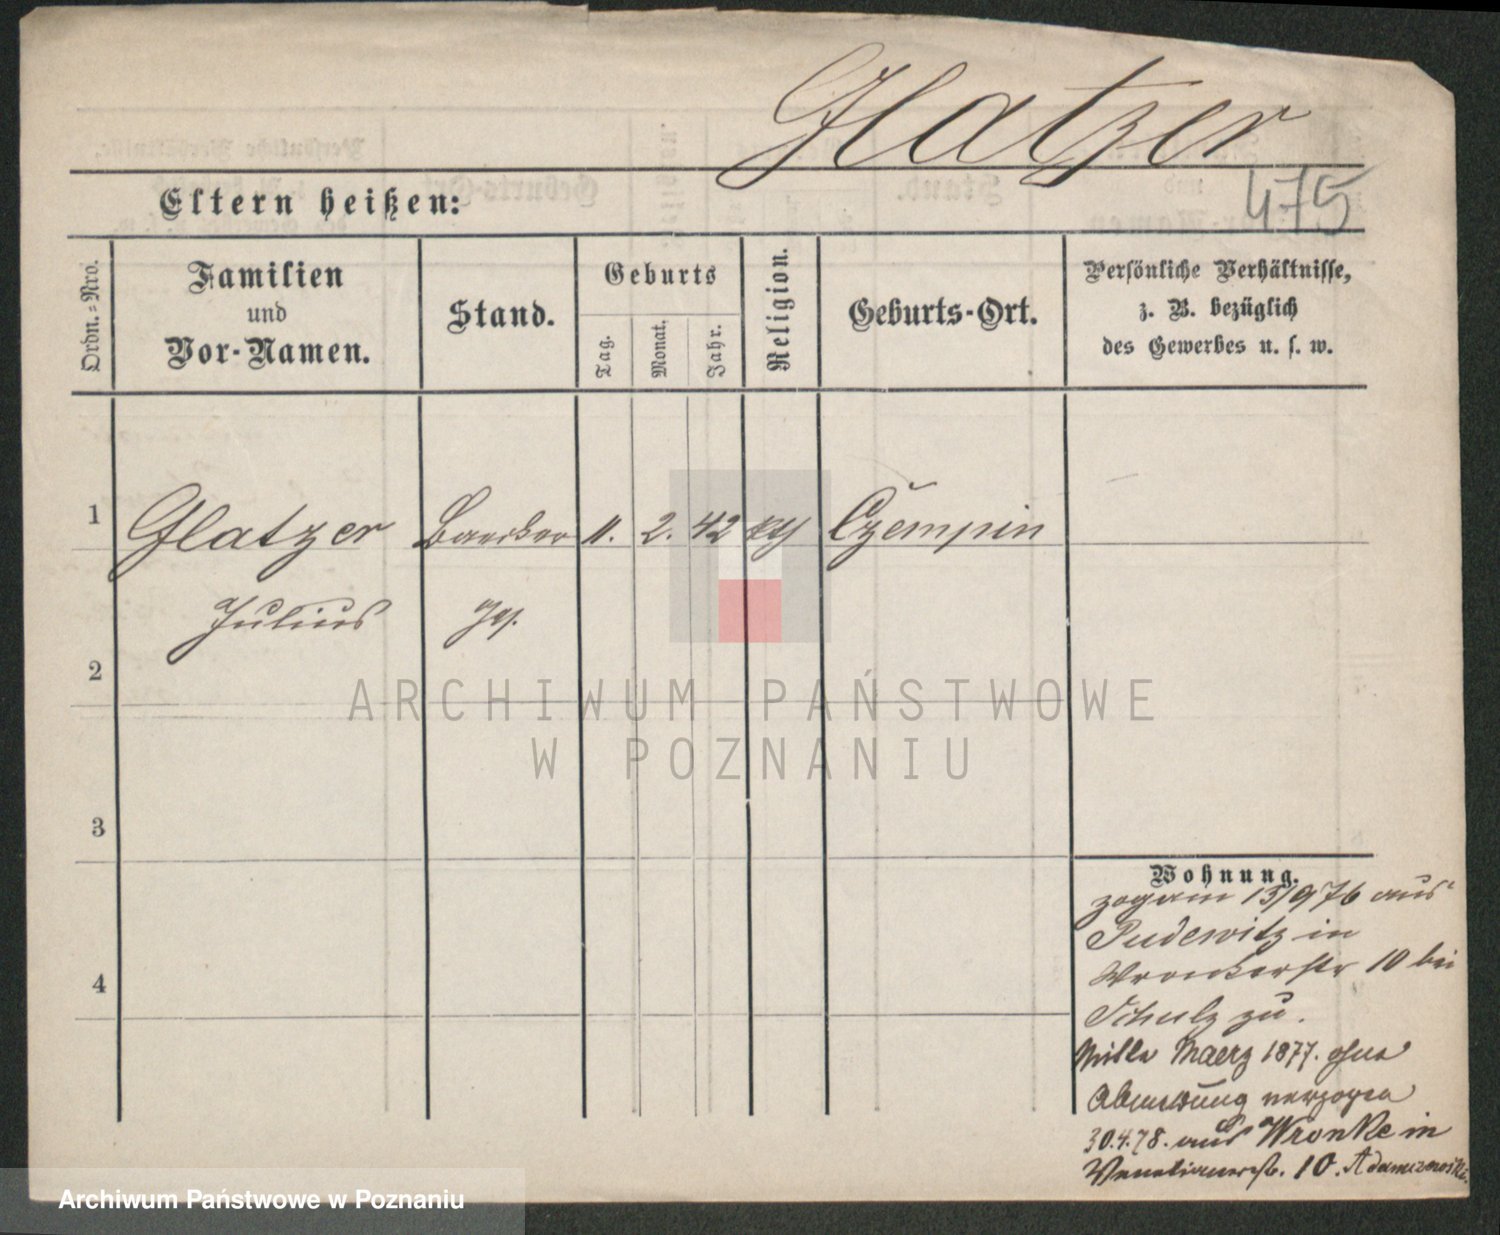 Glatzer
475
Eltern heißen:
Ordn.-Nro.
Familien
und
Vor-Namen.
Stand.
Geburts
Tag.
Monat.
Jahr.
Religion.
Geburts-Ort.
Persönliche Verhältnisse,
z. B. bezüglich
des Gewerbes u. s. w.
1 Glatzer Baecker 11. 2. 42 kth Czempin
Julius
2
3
4
ARCHIWUM PAŃSTWOWE
W POZNANIU
Wohnung.
zog am 13/9 76 aus
Pudewitz in
Wronkerstr 10 bei
Schulz zu.
Mitte Maerz 1877. ohne
Abmeldung verzogen
30.4.78. aus Wronke in
Venetianerstr. 10. Adamczewski.
Archiwum Państwowe w Poznaniu